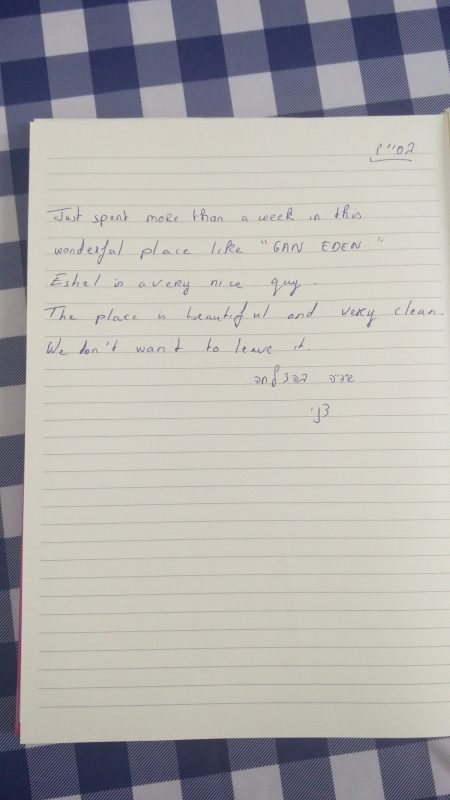 בס״ד
Just spent more than a week in this
wonderful place like "GAN EDEN"
Eshel is a very nice guy.
The place is beautiful and very clean.
We don't want to leave it.
בהצלחה